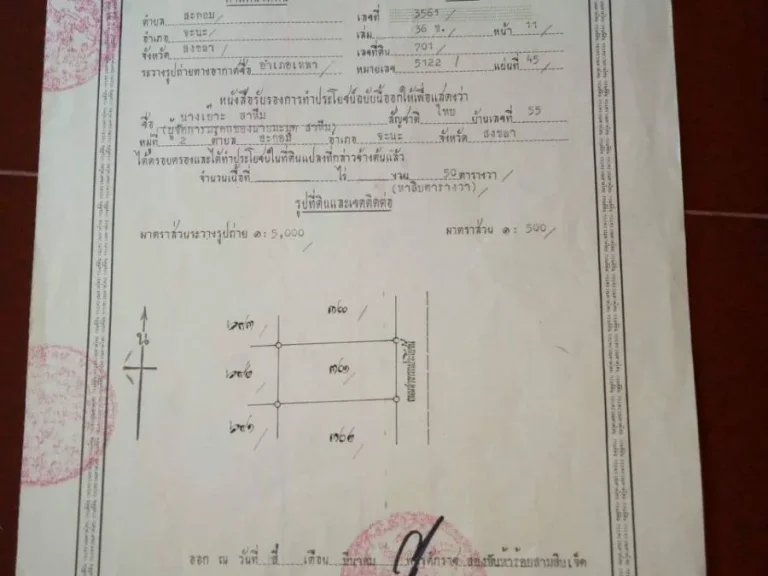 ตำบล สะกอม เลขที่ 3561
อำเภอ จะนะ เล่ม 36 ข. หน้า 11
จังหวัด สงขลา เลขที่ดิน 701
ระวางรูปถ่ายทางอากาศชื่อ อำเภอเทพา หมายเลข 5122 แผ่นที่ 45
หนังสือรับรองการทำประโยชน์ฉบับนี้ออกให้เพื่อแสดงว่า
ชื่อ สัญชาติ ไทย บ้านเลขที่ 55
หมู่ที่ 2 ตำบล สะกอม อำเภอ จะนะ จังหวัด สงขลา
ได้ครอบครองและได้ทำประโยชน์ในที่ดินแปลงที่กล่าวข้างต้นแล้ว
จำนวนเนื้อที่ ไร่ งาน 50 ตารางวา
(ห้าสิบตารางวา)
รูปที่ดินและเขตติดต่อ
มาตราส่วนระวางรูปถ่าย ๑:5,000 มาตราส่วน ๑: 500
๗๐๐
น
๗๐๑
๗๐๒
ออก ณ วันที่ สี่ เดือน มีนาคม พุทธศักราช สองพันห้าร้อยสามสิบเจ็ด